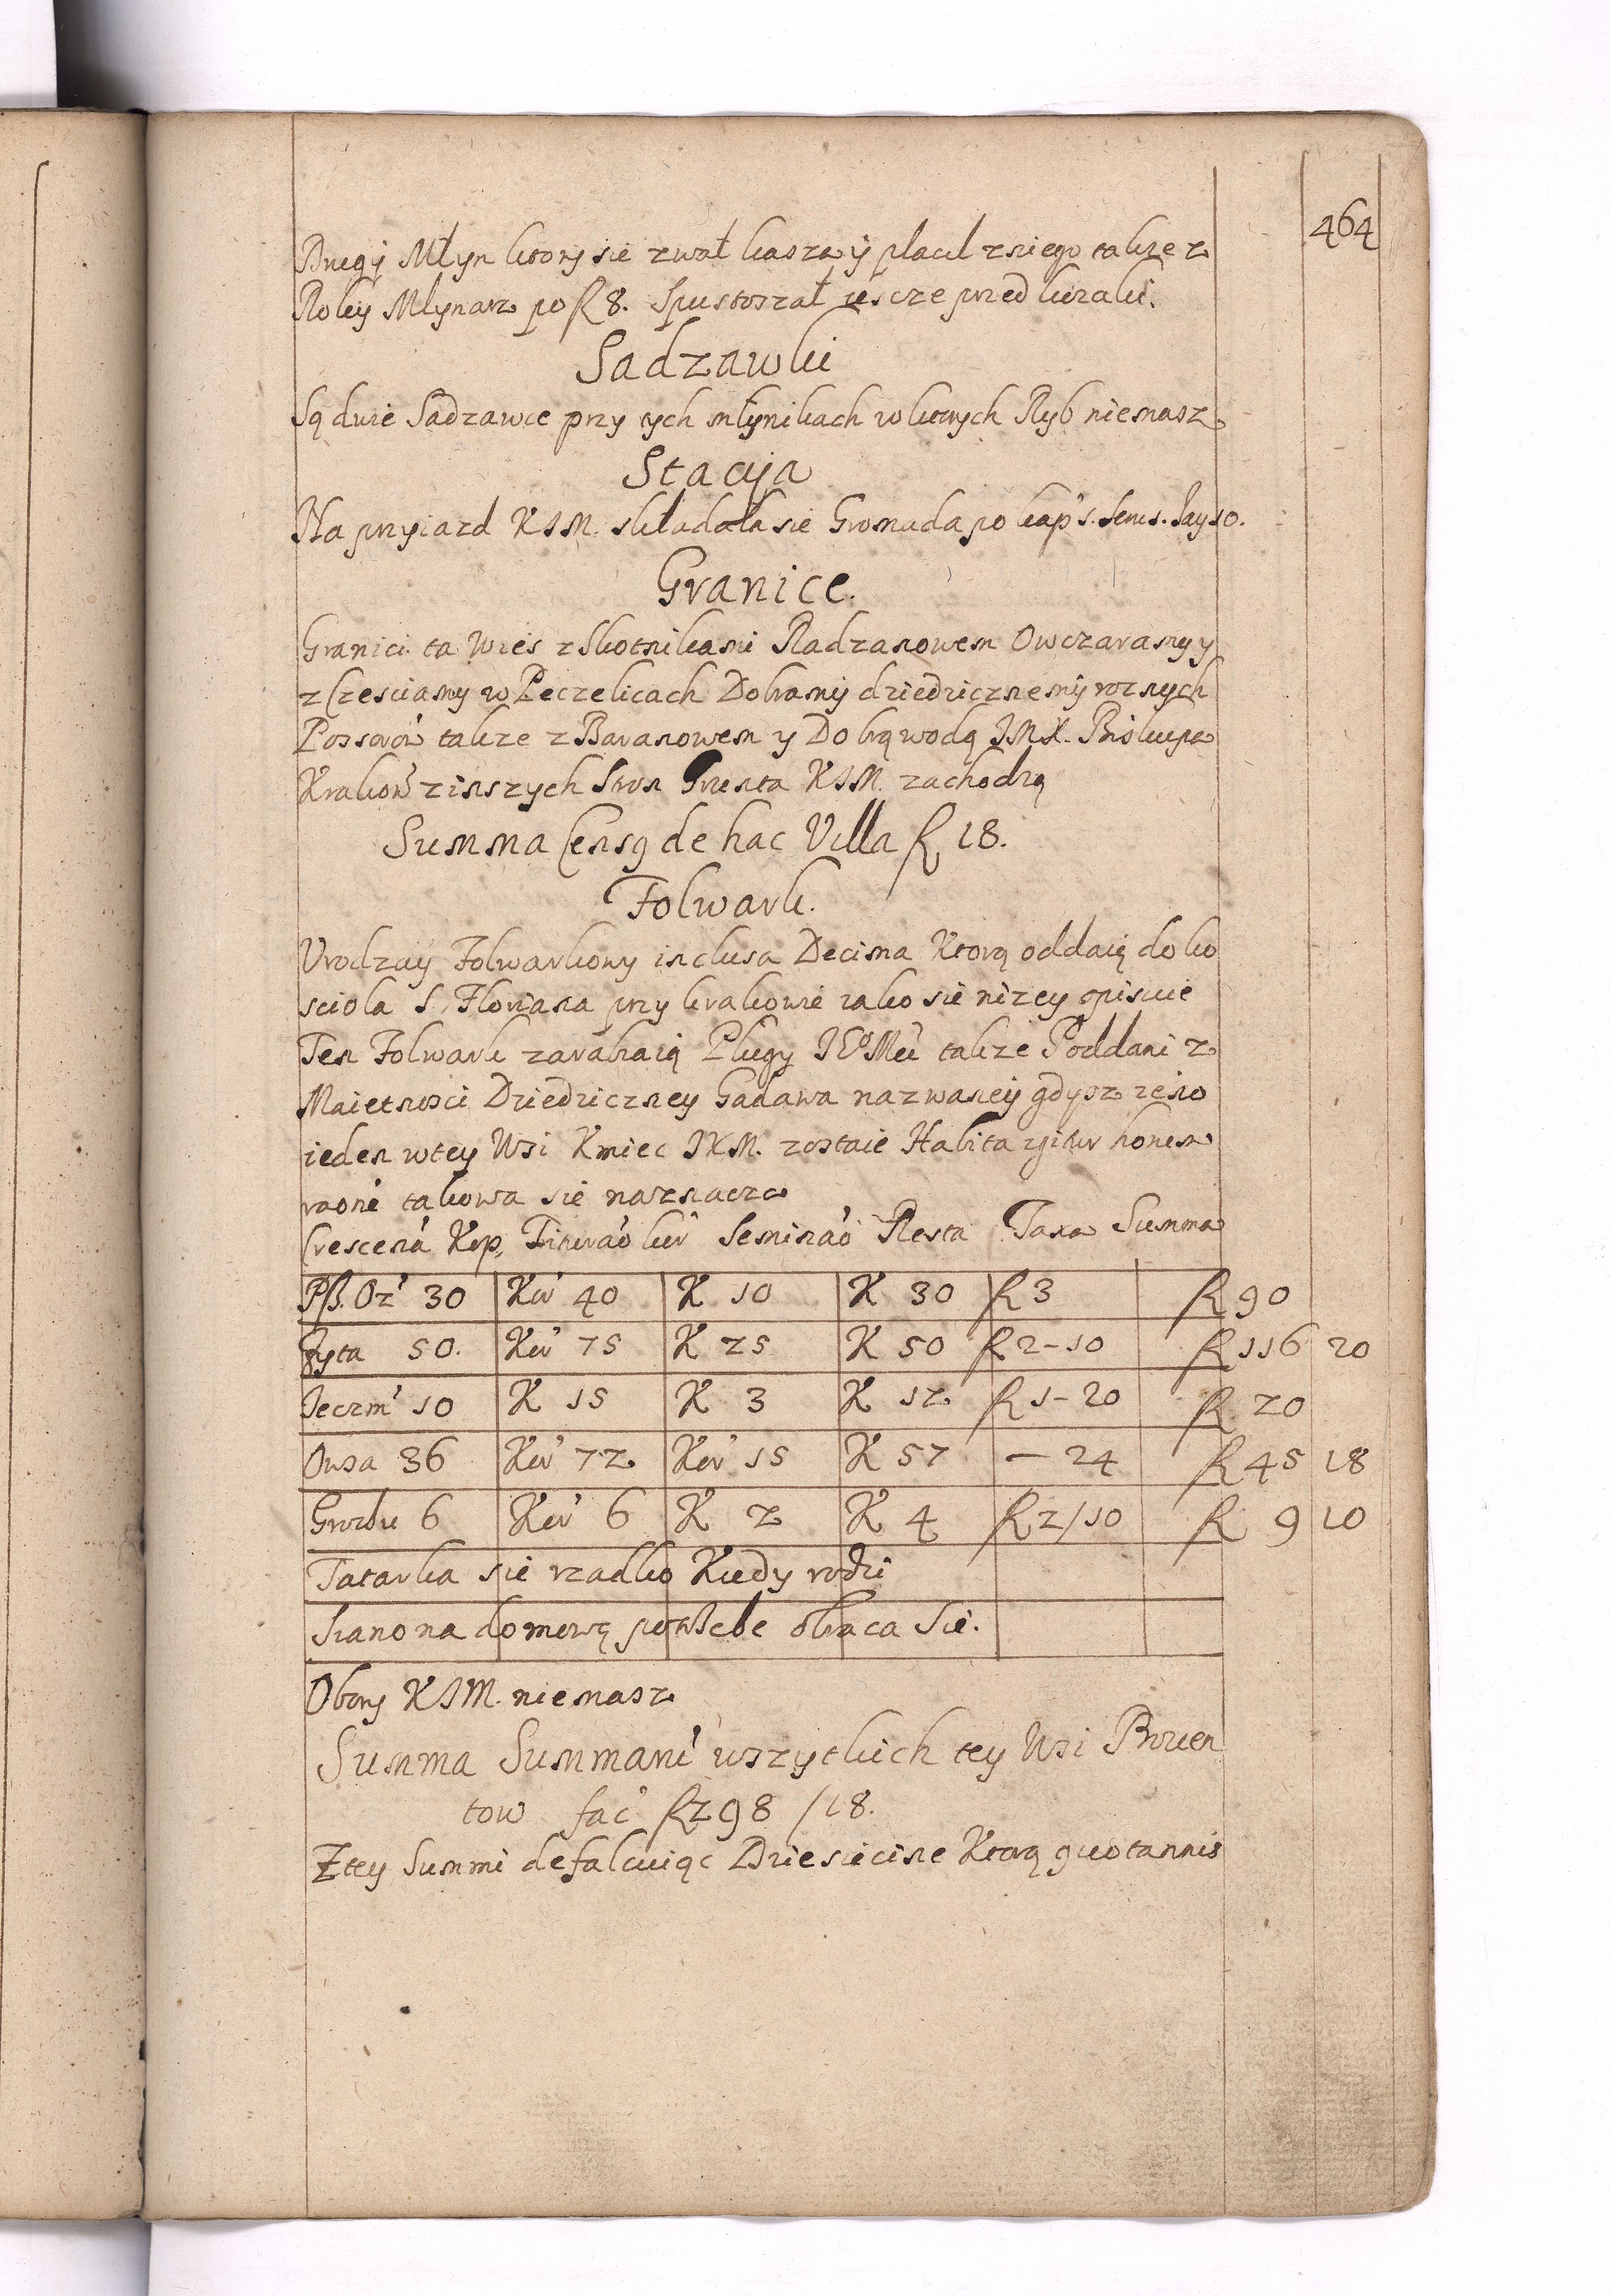 464
Drugÿ Młyn ktory sie zwał kaszaÿ płacił zniego takze z
Rolÿ Młynarz po fl 8. Spustoszał iescze przed kozaki.
Sadzawki
Są dwie Sadzawce przy tych młynikach w ktorych Ryb niemasz
Stacÿa
Na przyiazd KJM. składała sie Gromada po kap s.
Granice.
Granici ta Wies z Skotnikami Radzanowem Owczaramy y
z Czesciamy w Peczelicach Dobramÿ dziedzicznemÿ roznych
Possorów takze z Baranowem y Dobrą wodą JMX. Biskupa
Kraków z inszych Stron Grunta KJM. zachodzą
Summa Censq de hac Villa fl 18.
Folwark.
Urodzay Folwarkowy inclusa Decima Ktorą oddaią do ko
sciola S. Floriana przy krakowie iako sie nizey opisuie
Ten Folwark zarabiaią Plugy takze Poddani z
Maietnosci Dziedziczney Gadawa nazwaneÿ gdysz ieno
ieden wtey Wsi Kmiec JKM. zostaie Habita igitur horum
raone takowa sie naznacza
Crescená Kop, Triturao kor Seminao Resta Taxa Summa
Psz. Oz 30 Kor 40 K 10 K 30 fl 3 fl 90
Zyta 50. Kor 75 K 25 K 50 fl 2-10 fl 116 20
Jeczm 10 K 15 K 3 K 12 fl 1-20 fl 20
Owsa 36 Kor 72 Kor 15 K 57 - 24 fl 45 18
Grochu 6 Kor 6 K 2 K 4 fl 2/10 fl 9 10
Tatarka sie rzadko Kiedy rodzi
Siano na domową potrzebe obraca Sie.
Obory KJM. niemasz
Summa Summarú wszytkich tey Wsi Prouen
tow fac fl 298 /18.
Ztey Summi defalcuiąc Dziesiecine Ktorą quotannis